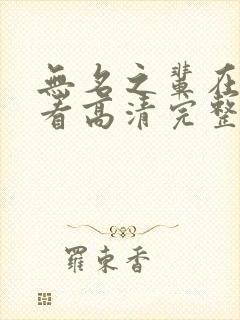 無名之輩在
看高清完整
羅東香